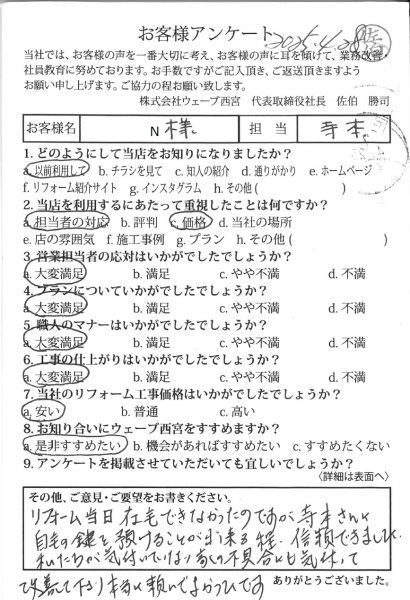 お客様アンケート 2025.4.28
当社では、お客様の声を一番大切に考え、お客様の声に耳を傾けて、業務改善・
社員教育に努めております。お手数ですがご記入頂き、ご返送頂きますよう
お願い申し上げます。ご協力の程お願い致します。
株式会社ウェーブ西宮 代表取締役社長 佐伯 勝司
お客様名 N 様 担当 寺本
1. どのようにして当店をお知りになりましたか?
a. 以前利用して b. チラシを見て c. 知人の紹介 d. 通りがかり e. ホームページ
f. リフォーム紹介サイト g. インスタグラム h. その他( )
2. 当店を利用するにあたって重視したことは何ですか?
a. 担当者の対応 b. 評判 c. 価格 d. 当社の場所
e. 店の雰囲気 f. 施工事例 g. プラン h. その他( )
3. 営業担当者の応対はいかがでしたでしょうか?
a. 大変満足 b. 満足 c. やや不満 d. 不満
4. プランについていかがでしたでしょうか?
a. 大変満足 b. 満足 c. やや不満 d. 不満
5. 職人のマナーはいかがでしたでしょうか?
a. 大変満足 b. 満足 c. やや不満 d. 不満
6. 工事の仕上がりはいかがでしたでしょうか?
a. 大変満足 b. 満足 c. やや不満 d. 不満
7. 当社のリフォーム工事価格はいかがでしたでしょうか?
a. 安い b. 普通 c. 高い
8. お知り合いにウェーブ西宮をすすめますか?
a. 是非すすめたい b. 機会があればすすめたい c. すすめたくない
9. アンケートを掲載させていただいても宜しいでしょうか?
〈詳細は表面へ〉
その他、ご意見・ご要望をお書きください。
リフォーム当日 在宅できなかったのですが 寺本さんに
自宅の鍵を預けることが出来る程、信頼できました。
私たちが気付いていない 不具合にも気付いて
改善して下さり本当に頼んでよかったです
ありがとうございました。